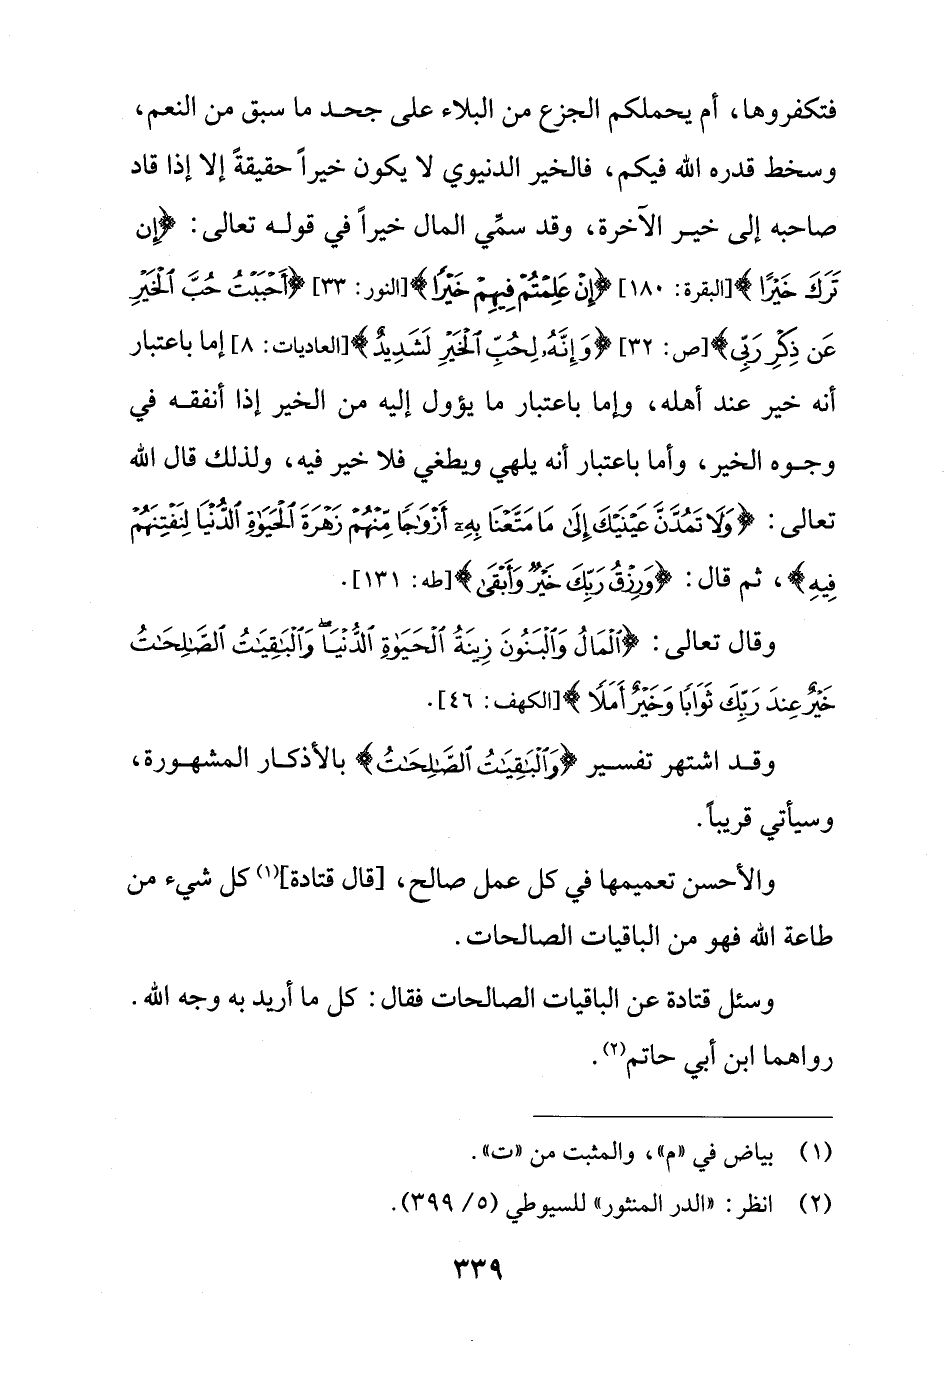 فتكفروها، أم يحملكم الجزع من البلاء على جحد ما سبق من النعم،
وسخط قدره الله فيكم، فالخير الدنيوي لا يكون خيراً حقيقةً إلا إذا قاد
صاحبه إلى خير الآخرة، وقد سمِّي المال خيراً في قوله تعالى: ﴿إِن
تَرَكَ خَيْرًا﴾ [البقرة: ١٨٠] ﴿إِنْ عَلِمْتُمْ فِيهِمْ خَيْرًا﴾ [النور: ٣٣] ﴿أَحْبَبْتُ حُبَّ ٱلْخَيْرِ
عَن ذِكْرِ رَبِّى﴾ [ص: ٣٢] ﴿وَإِنَّهُۥ لِحُبِّ ٱلْخَيْرِ لَشَدِيدٌ﴾ [العاديات: ٨] إما باعتبار
أنه خير عند أهله، وإما باعتبار ما يؤول إليه من الخير إذا أنفقه في
وجوه الخير، وأما باعتبار أنه يلهي ويطغي فلا خير فيه، ولذلك قال الله
تعالى: ﴿وَلَا تَمُدَّنَّ عَيْنَيْكَ إِلَىٰ مَا مَتَّعْنَا بِهِۦٓ أَزْوَٰجًا مِّنْهُمْ زَهْرَةَ ٱلْحَيَوٰةِ ٱلدُّنْيَا لِنَفْتِنَهُمْ
فِيهِ﴾، ثم قال: ﴿وَرِزْقُ رَبِّكَ خَيْرٌ وَأَبْقَىٰ﴾ [طه: ١٣١].
وقال تعالى: ﴿ٱلْمَالُ وَٱلْبَنُونَ زِينَةُ ٱلْحَيَوٰةِ ٱلدُّنْيَا ۖ وَٱلْبَٰقِيَٰتُ ٱلصَّٰلِحَٰتُ
خَيْرٌ عِندَ رَبِّكَ ثَوَابًا وَخَيْرٌ أَمَلًا﴾ [الكهف: ٤٦].
وقد اشتهر تفسير ﴿وَٱلْبَٰقِيَٰتُ ٱلصَّٰلِحَٰتُ﴾ بالأذكار المشهورة،
وسيأتي قريباً.
والأحسن تعميمها في كل عمل صالح، [قال قتادة](١) كل شيء من
طاعة الله فهو من الباقيات الصالحات.
وسئل قتادة عن الباقيات الصالحات فقال: كل ما أريد به وجه الله.
رواهما ابن أبي حاتم(٢).
(١) بياض في «م»، والمثبت من «ت».
(٢) انظر: «الدر المنثور» للسيوطي (٥/ ٣٩٩).
٣٣٩